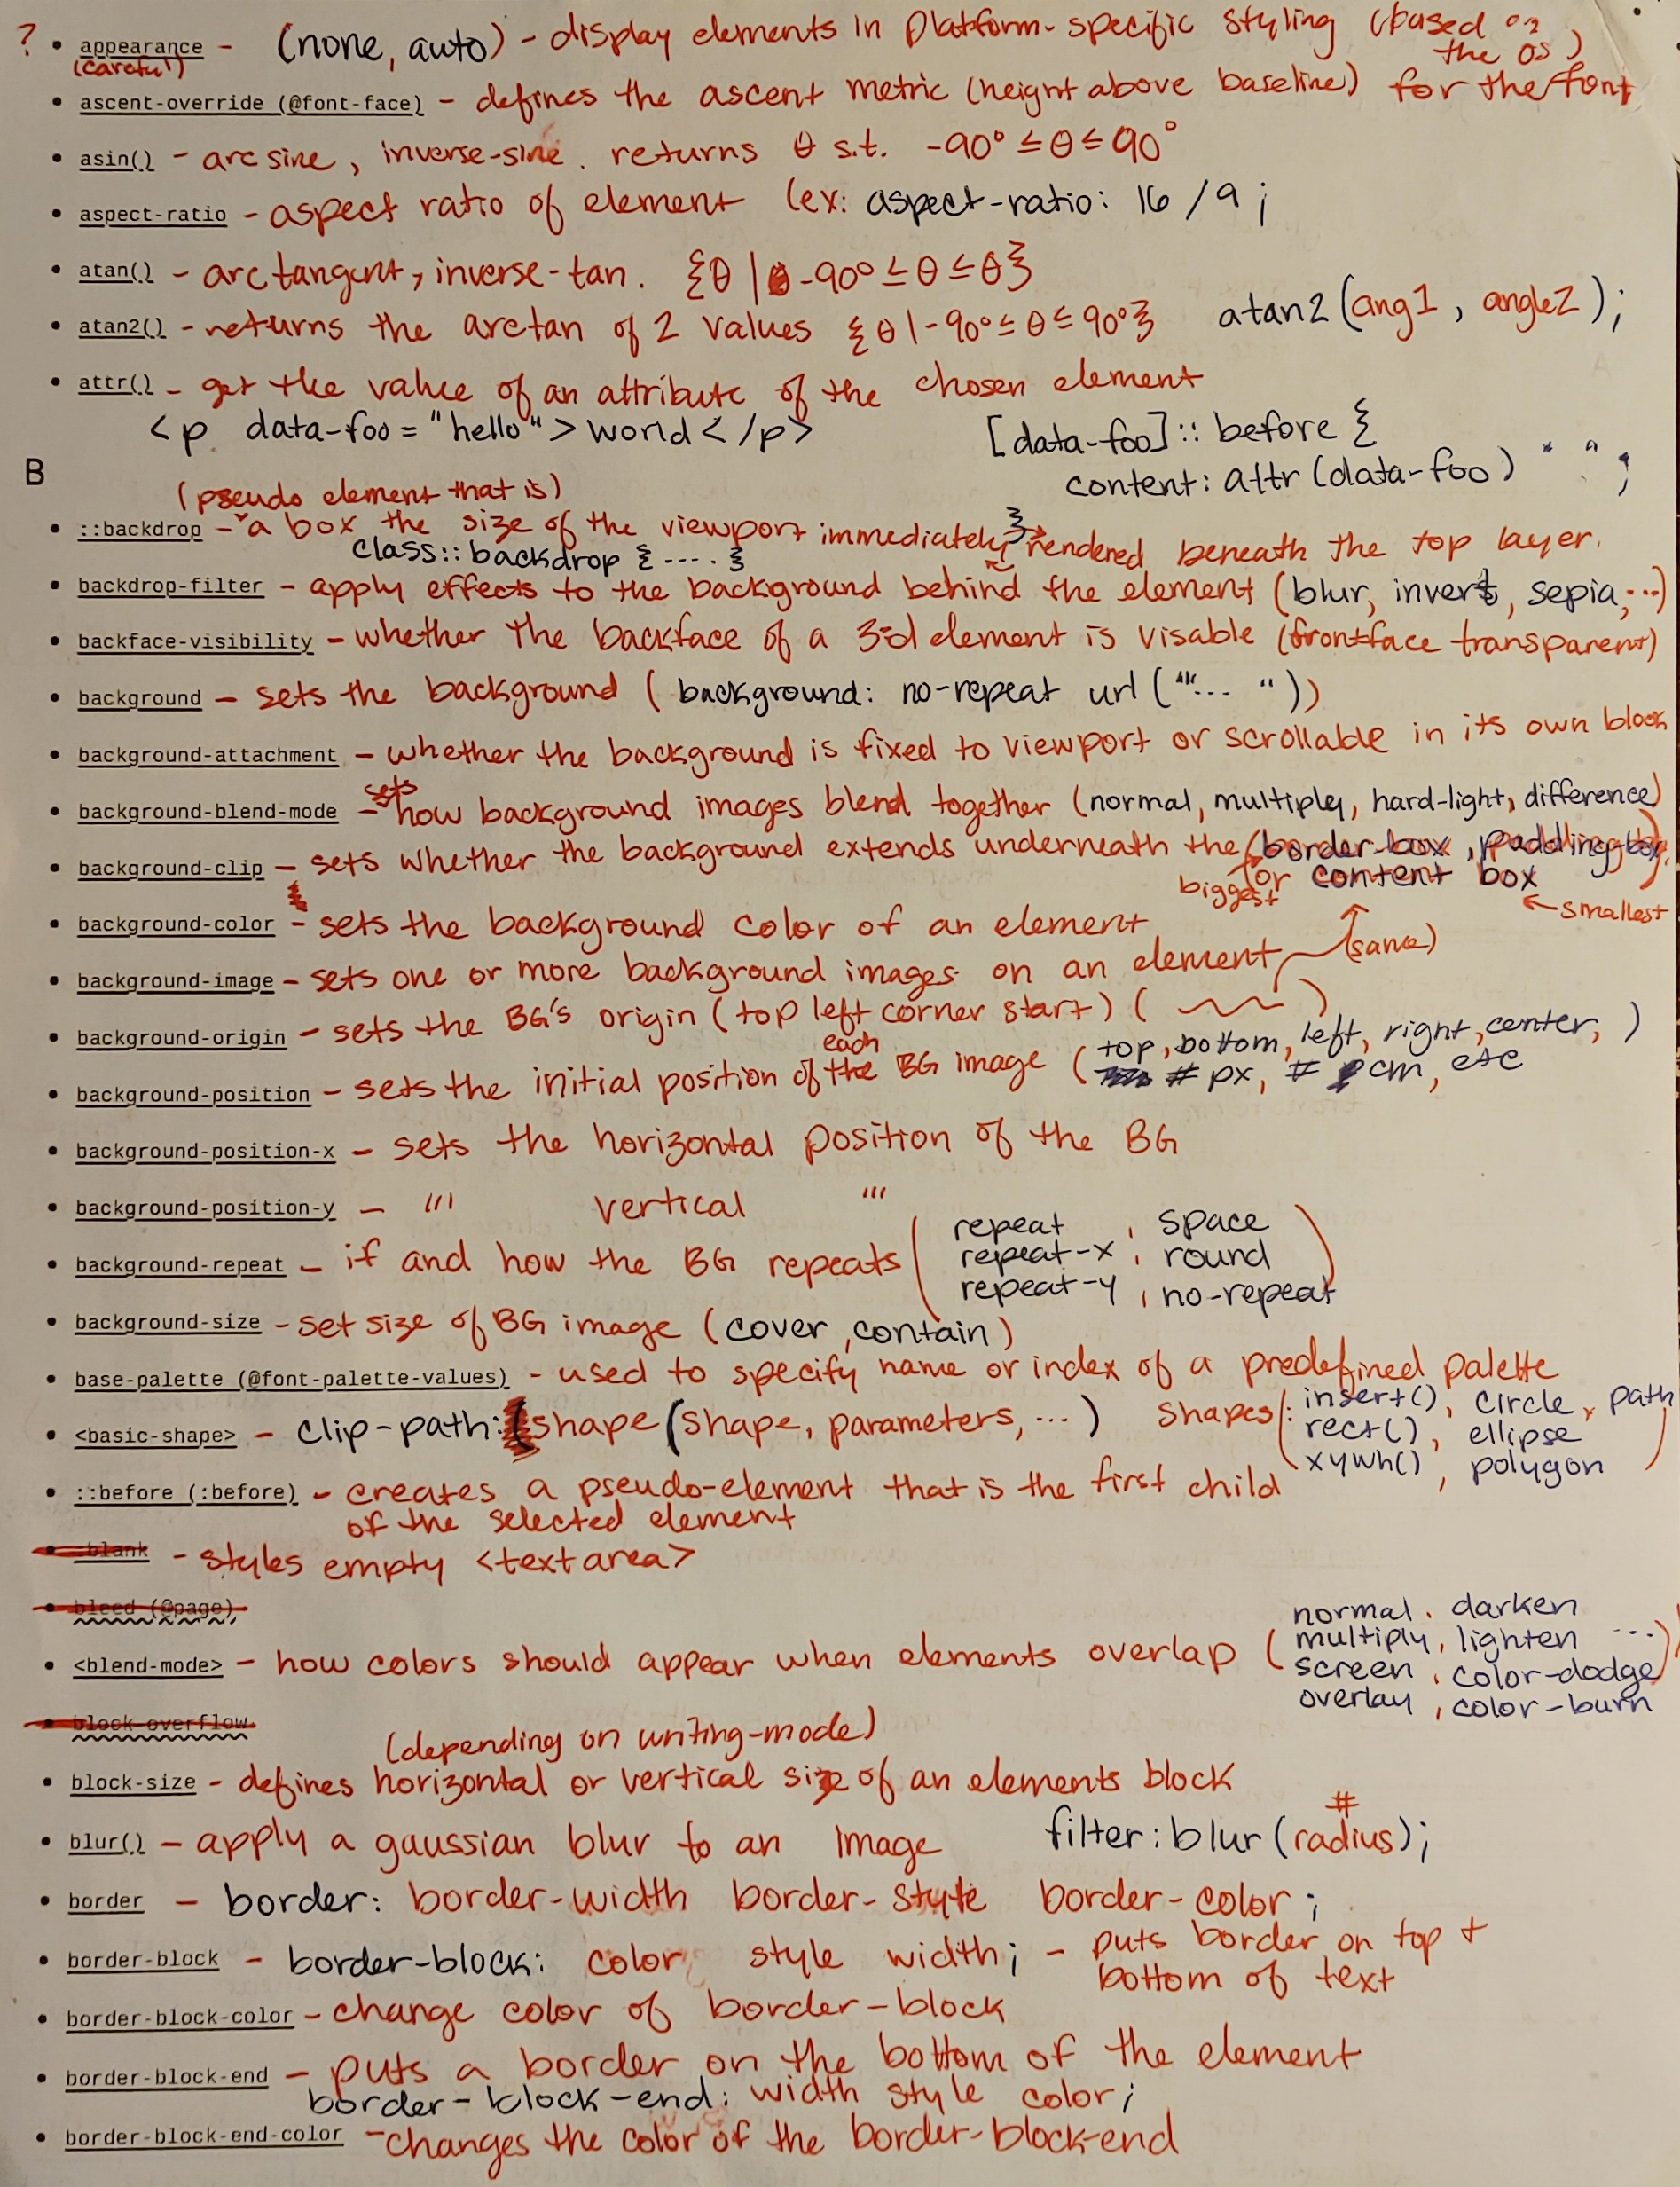 ? • appearance - (none, auto) - display elements in Platform-specific styling (based on
(careful) the OS)
• ascent-override (@font-face) - defines the ascent metric (height above baseline) for the font
• asin() - arc sine, inverse-sine. returns θ s.t. -90° ≤ θ ≤ 90°
• aspect-ratio - aspect ratio of element (ex: aspect-ratio: 16 / 9 ;
• atan() - arc tangent, inverse-tan. {θ | -90° ≤ θ ≤ θ}
• atan2() - returns the arctan of 2 values {θ | -90° ≤ θ ≤ 90°} atan2 (ang1, angle2);
• attr() - get the value of an attribute of the chosen element
<p data-foo = "hello"> world </p> [data-foo]:: before {
content: attr (data-foo) " " ;
}
B
(pseudo element that is)
• ::backdrop - a box the size of the viewport immediately rendered beneath the top layer.
class:: backdrop { ---- }
• backdrop-filter - apply effects to the background behind the element (blur, invert, sepia, ...)
• backface-visibility - whether the backface of a 3-d element is visable (front-face transparent)
• background - sets the background ( background: no-repeat url ("... "))
• background-attachment - whether the background is fixed to viewport or scrollable in its own block
• background-blend-mode - sets how background images blend together (normal, multiply, hard-light, difference)
• background-clip - sets whether the background extends underneath the (border-box, padding-box,
or content box)
biggest ← smallest
• background-color - sets the background color of an element
• background-image - sets one or more background images on an element (same)
• background-origin - sets the BG's origin (top left corner start) ( )
• background-position - sets the initial position of the each BG image (top, bottom, left, right, center, )
# px, # cm, etc
• background-position-x - sets the horizontal position of the BG
• background-position-y - "' vertical "'
• background-repeat - if and how the BG repeats ( repeat, space
repeat-x, round
repeat-y, no-repeat )
• background-size - set size of BG image (cover, contain)
• base-palette (@font-palette-values) - used to specify name or index of a predefined palette
• <basic-shape> - clip-path: shape (shape, parameters, ...) Shapes: (insert(), circle, path
rect(), ellipse
xywh(), polygon )
• ::before (:before) - creates a pseudo-element that is the first child
of the selected element
• :blank - styles empty <textarea>
• bleed (@page)
• <blend-mode> - how colors should appear when elements overlap ( normal, darken
multiply, lighten ...
screen, color-dodge
overlay, color-burn )
• block-overflow
(depending on writing-mode)
• block-size - defines horizontal or vertical size of an elements block
• blur() - apply a gaussian blur to an image filter: blur (radius);
#
• border - border: border-width border-style border-color ;
• border-block - border-block: color style width; - puts border on top +
bottom of text
• border-block-color - change color of border-block
• border-block-end - puts a border on the bottom of the element
border-block-end: width style color;
• border-block-end-color - changes the color of the border-block-end